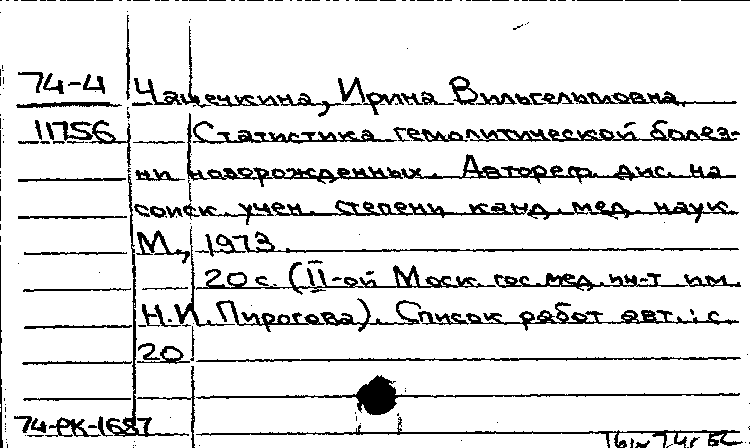 74-4 Чащечкина, Ирина Вильгельмовна
11756 Статистика гемолитической болез-
ни новорожденных. Автореф. дис. на
соиск. учен. степени канд. мед. наук
М., 1973.
20 с. (II-ой Моск. гос. мед. ин-т им.
Н.И. Пирогова). Список работ авт.: с.
20
74-РК-1687